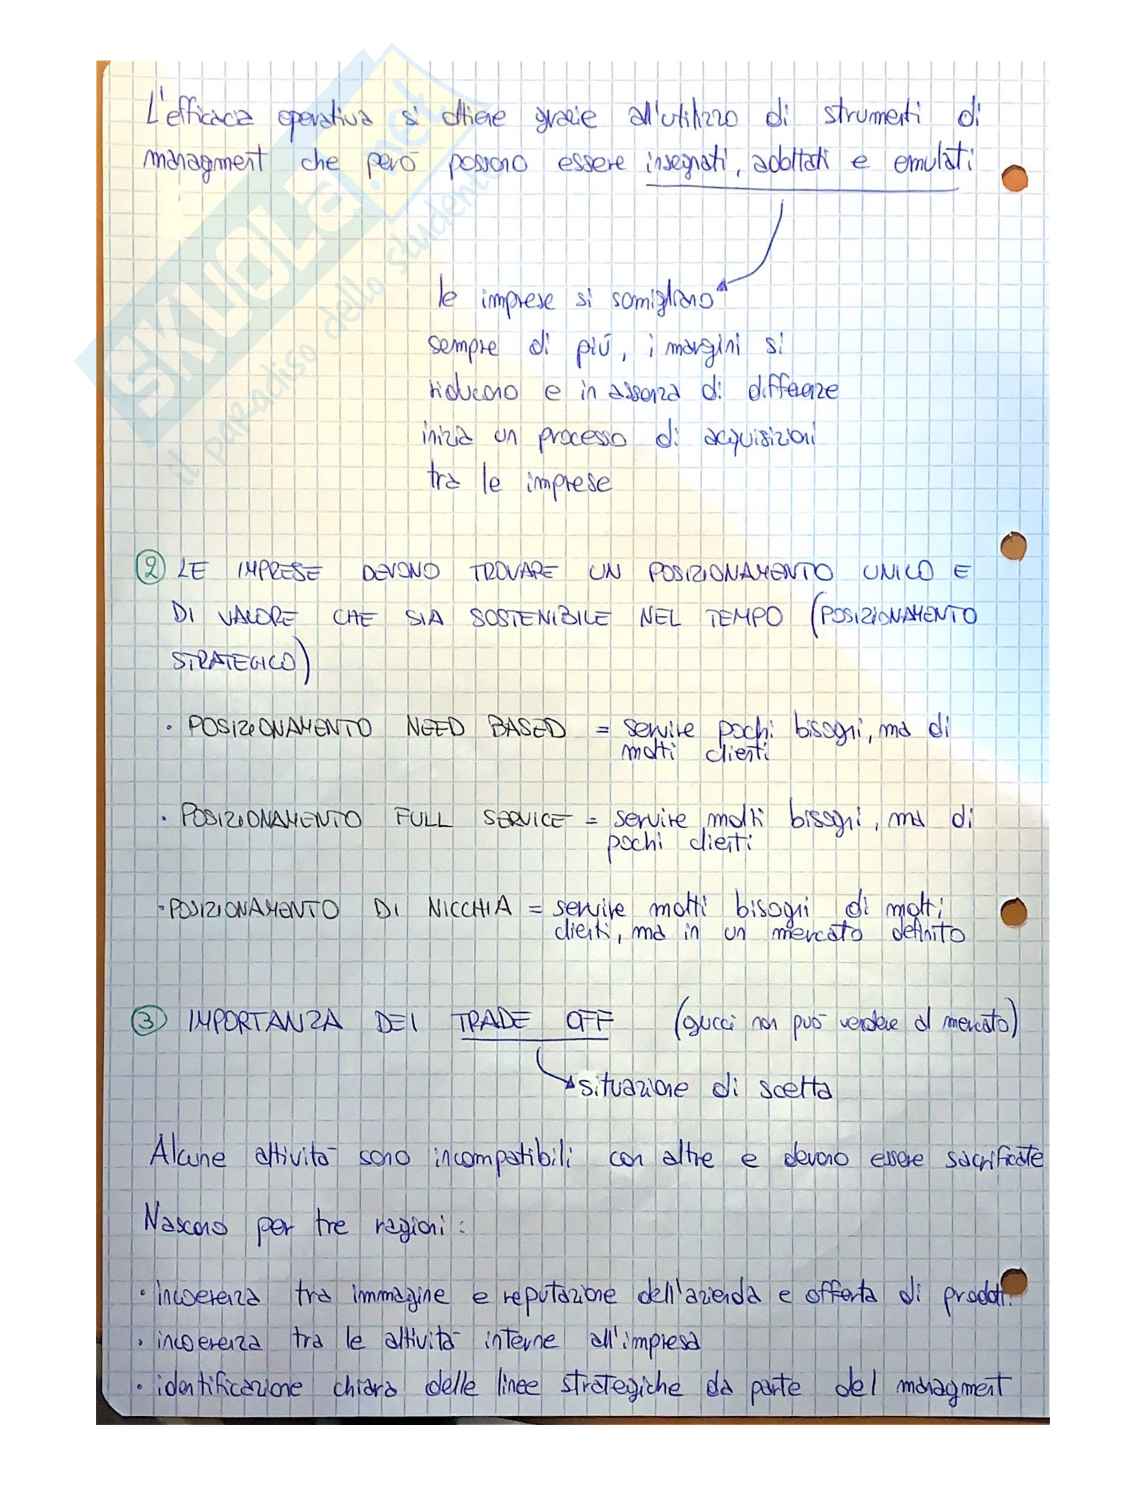 L'efficacia operativa si ottiene grazie all'utilizzo di strumenti di
managment che però possono essere insegnati, adottati e emulati
le imprese si somigliano
sempre di più, i margini si
riducono e in assenza di differenze
inizia un processo di acquisizioni
tra le imprese
② LE IMPRESE DEVONO TROVARE UN POSIZIONAMENTO UNICO E
DI VALORE CHE SIA SOSTENIBILE NEL TEMPO (POSIZIONAMENTO
STRATEGICO)
· POSIZIONAMENTO NEED BASED = servire pochi bisogni, ma di
molti clienti
· POSIZIONAMENTO FULL SERVICE = servire molti bisogni, ma di
pochi clienti
· POSIZIONAMENTO DI NICCHIA = servire molti bisogni di molti
clienti, ma in un mercato definito
③ IMPORTANZA DEI TRADE OFF (gucci non può vendere al mercato)
situazione di scelta
Alcune attività sono incompatibili con altre e devono essere sacrificate
Nascono per tre ragioni:
· incoerenza tra immagine e reputazione dell'azienda e offerta di prodotti
· incoerenza tra le attività interne all'impresa
· identificazione chiara delle linee strategiche da parte del managment
SKUOLA.net
il paradiso dello studente